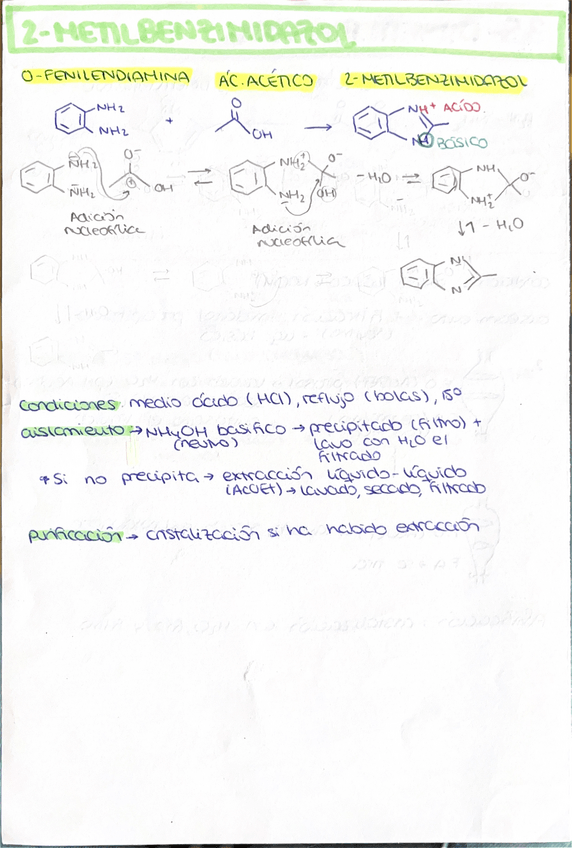 2-METILBENZIMIDAZOL
O-FENILENDIAMINA ÁC. ACÉTICO 2-METILBENZIMIDAZOL
NH2 O NH+ ÁCIDO.
NH2 + OH → N BÁSICO
NH2 O- NH2+ O- - H2O ⇌ NH O-
NH2 OH ⇌ NH2 OH NH2+
Adición nucleofílica Adición nucleofílica ↓↑ - H2O
N
N
condiciones: medio ácido (HCl), reflujo (bolas), 150
aislamiento → NH4OH basifico → precipitado (filtro) +
(neutro) lavo con H2O el
filtrado
* Si no precipita → extracción líquido-líquido
(AcOEt) → lavado, secado, filtrado
purificación → cristalización si ha habido extracción